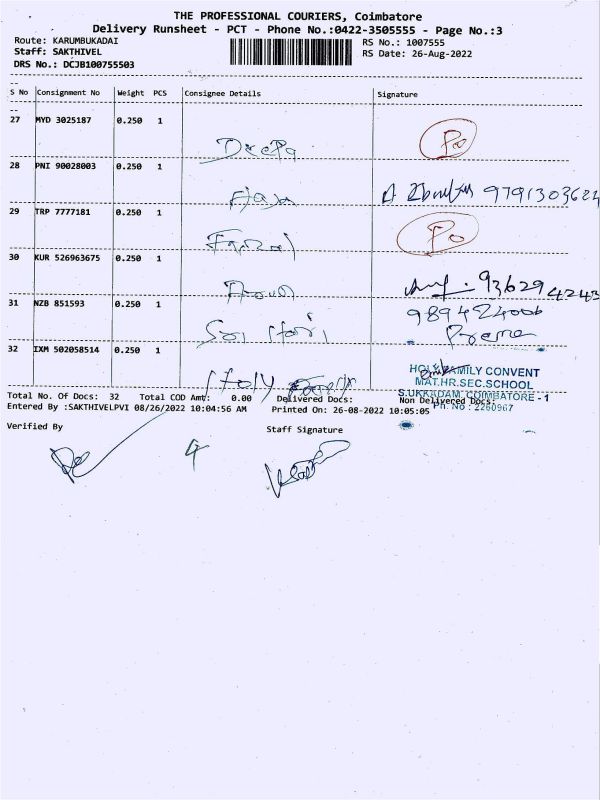 THE PROFESSIONAL COURIERS, Coimbatore
Delivery Runsheet - PCT - Phone No.:0422-3505555 - Page No.:3
Route: KARUMBUKADAI
RS No.: 1007555
Staff: SAKTHIVEL
RS Date: 26-Aug-2022
DRS No.: DCJB100755503
S No Consignment No Weight PCS Consignee Details Signature
27 MYD 3025187 0.250 1
Deepa Po
28 PNI 90028003 0.250 1
9791303624
29 TRP 7777181 0.250 1
Po
30 KUR 526963675 0.250 1
9362942243
31 NZB 851593 0.250 1
9894224006
Sri Hari Prema
32 IXM 502058514 0.250 1
HOLY FAMILY CONVENT
MAT.HR.SEC.SCHOOL
Holy
S.UKKADAM, COIMBATORE - 1
Total No. Of Docs: 32 Total COD Amt: 0.00 Delivered Docs: Non Delivered Docs:
Ph. No : 2260967
Entered By :SAKTHIVELPVI 08/26/2022 10:04:56 AM Printed On: 26-08-2022 10:05:05
Verified By Staff Signature